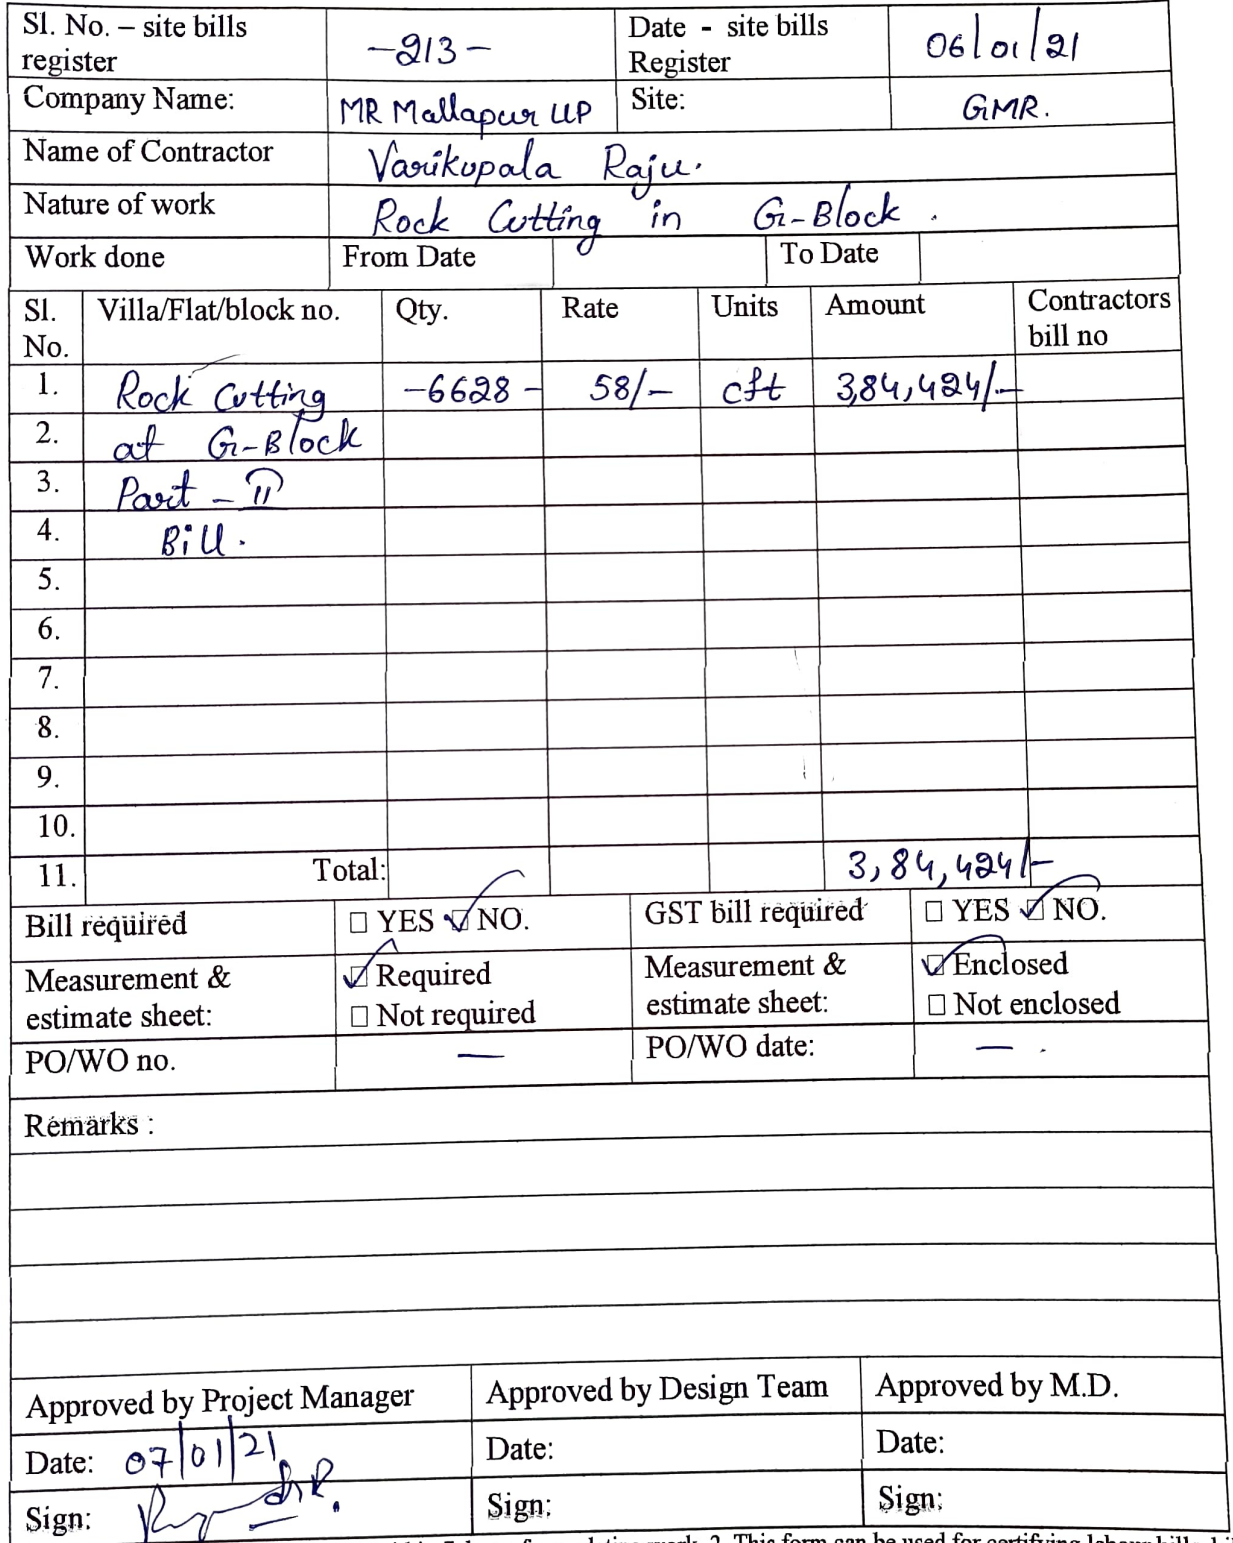 Sl. No. – site bills register -213- Date - site bills Register 06/01/21
Company Name: MR Mallapur LLP Site: GMR.
Name of Contractor Varikupala Raju.
Nature of work Rock Cutting in G-Block.
Work done From Date To Date
Sl. No. Villa/Flat/block no. Qty. Rate Units Amount Contractors bill no
1. Rock Cutting -6628- 58/- cft 3,84,424/-
2. at G-Block
3. Part - II
4. Bill.
5.
6.
7.
8.
9.
10.
11. Total: 3,84,424/-
Bill required ☐ YES ☑ NO. GST bill required ☐ YES ☑ NO.
Measurement & estimate sheet: ☑ Required ☐ Not required Measurement & estimate sheet: ☑ Enclosed ☐ Not enclosed
PO/WO no. — PO/WO date: —
Remarks :
Approved by Project Manager Approved by Design Team Approved by M.D.
Date: 07/01/21 Date: Date:
Sign: Sign: Sign: